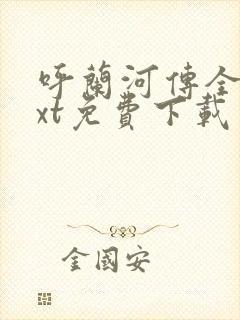 呼蘭河傳全
xt免費下載
金國安